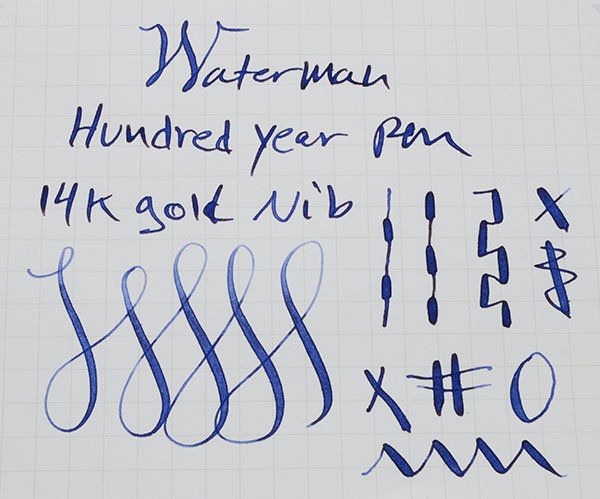 Waterman
Hundred year Pen
14K gold Nib
X
X # O